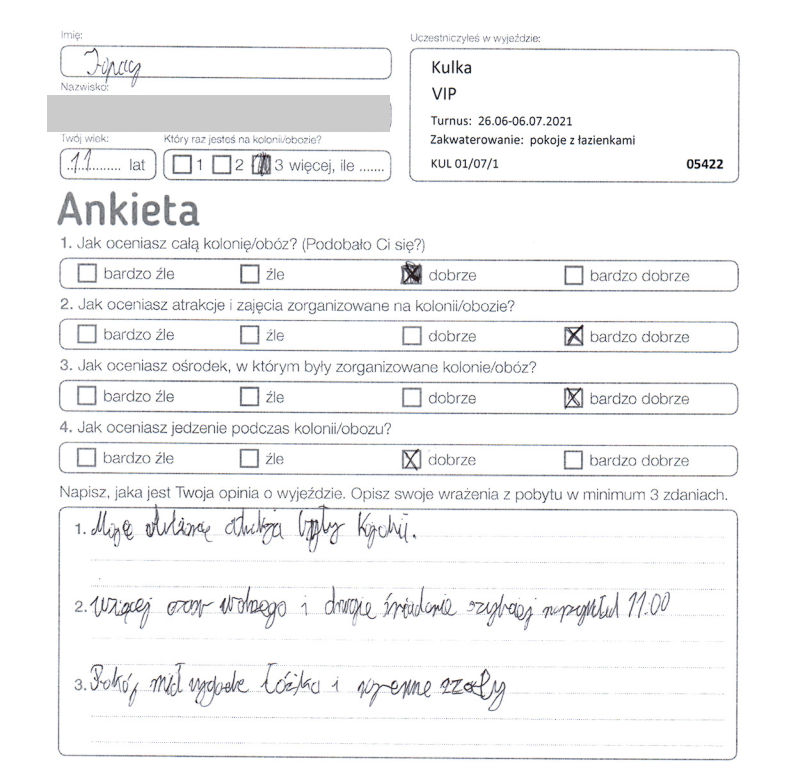 Imię:
Ignacy
Uczestniczyłeś w wyjeździe:
Kulka
VIP
Turnus: 26.06-06.07.2021
Zakwaterowanie: pokoje z łazienkami
KUL 01/07/1 05422
Nazwisko:
Twój wiek: Który raz jesteś na kolonii/obozie?
11 lat 1 2 3 więcej, ile .......
Ankieta
1. Jak oceniasz całą kolonię/obóz? (Podobało Ci się?)
bardzo źle źle dobrze bardzo dobrze
2. Jak oceniasz atrakcje i zajęcia zorganizowane na kolonii/obozie?
bardzo źle źle dobrze bardzo dobrze
3. Jak oceniasz ośrodek, w którym były zorganizowane kolonie/obóz?
bardzo źle źle dobrze bardzo dobrze
4. Jak oceniasz jedzenie podczas kolonii/obozu?
bardzo źle źle dobrze bardzo dobrze
Napisz, jaka jest Twoja opinia o wyjeździe. Opisz swoje wrażenia z pobytu w minimum 3 zdaniach.
1. były
2. więcej wolnego i drugie śniadanie szybciej 11.00
3. Pokój miał wygodne łóżka i szafy